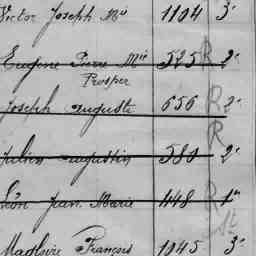 Victor Joseph Mie 1104 3e
Eugène Pierre Mie 525 R 2e
Prosper
Joseph Auguste 656 R 2e
R
Julien Augustin 580 2e
Léon Jean Marie 448 R 1er
Magloire François 1045 3e